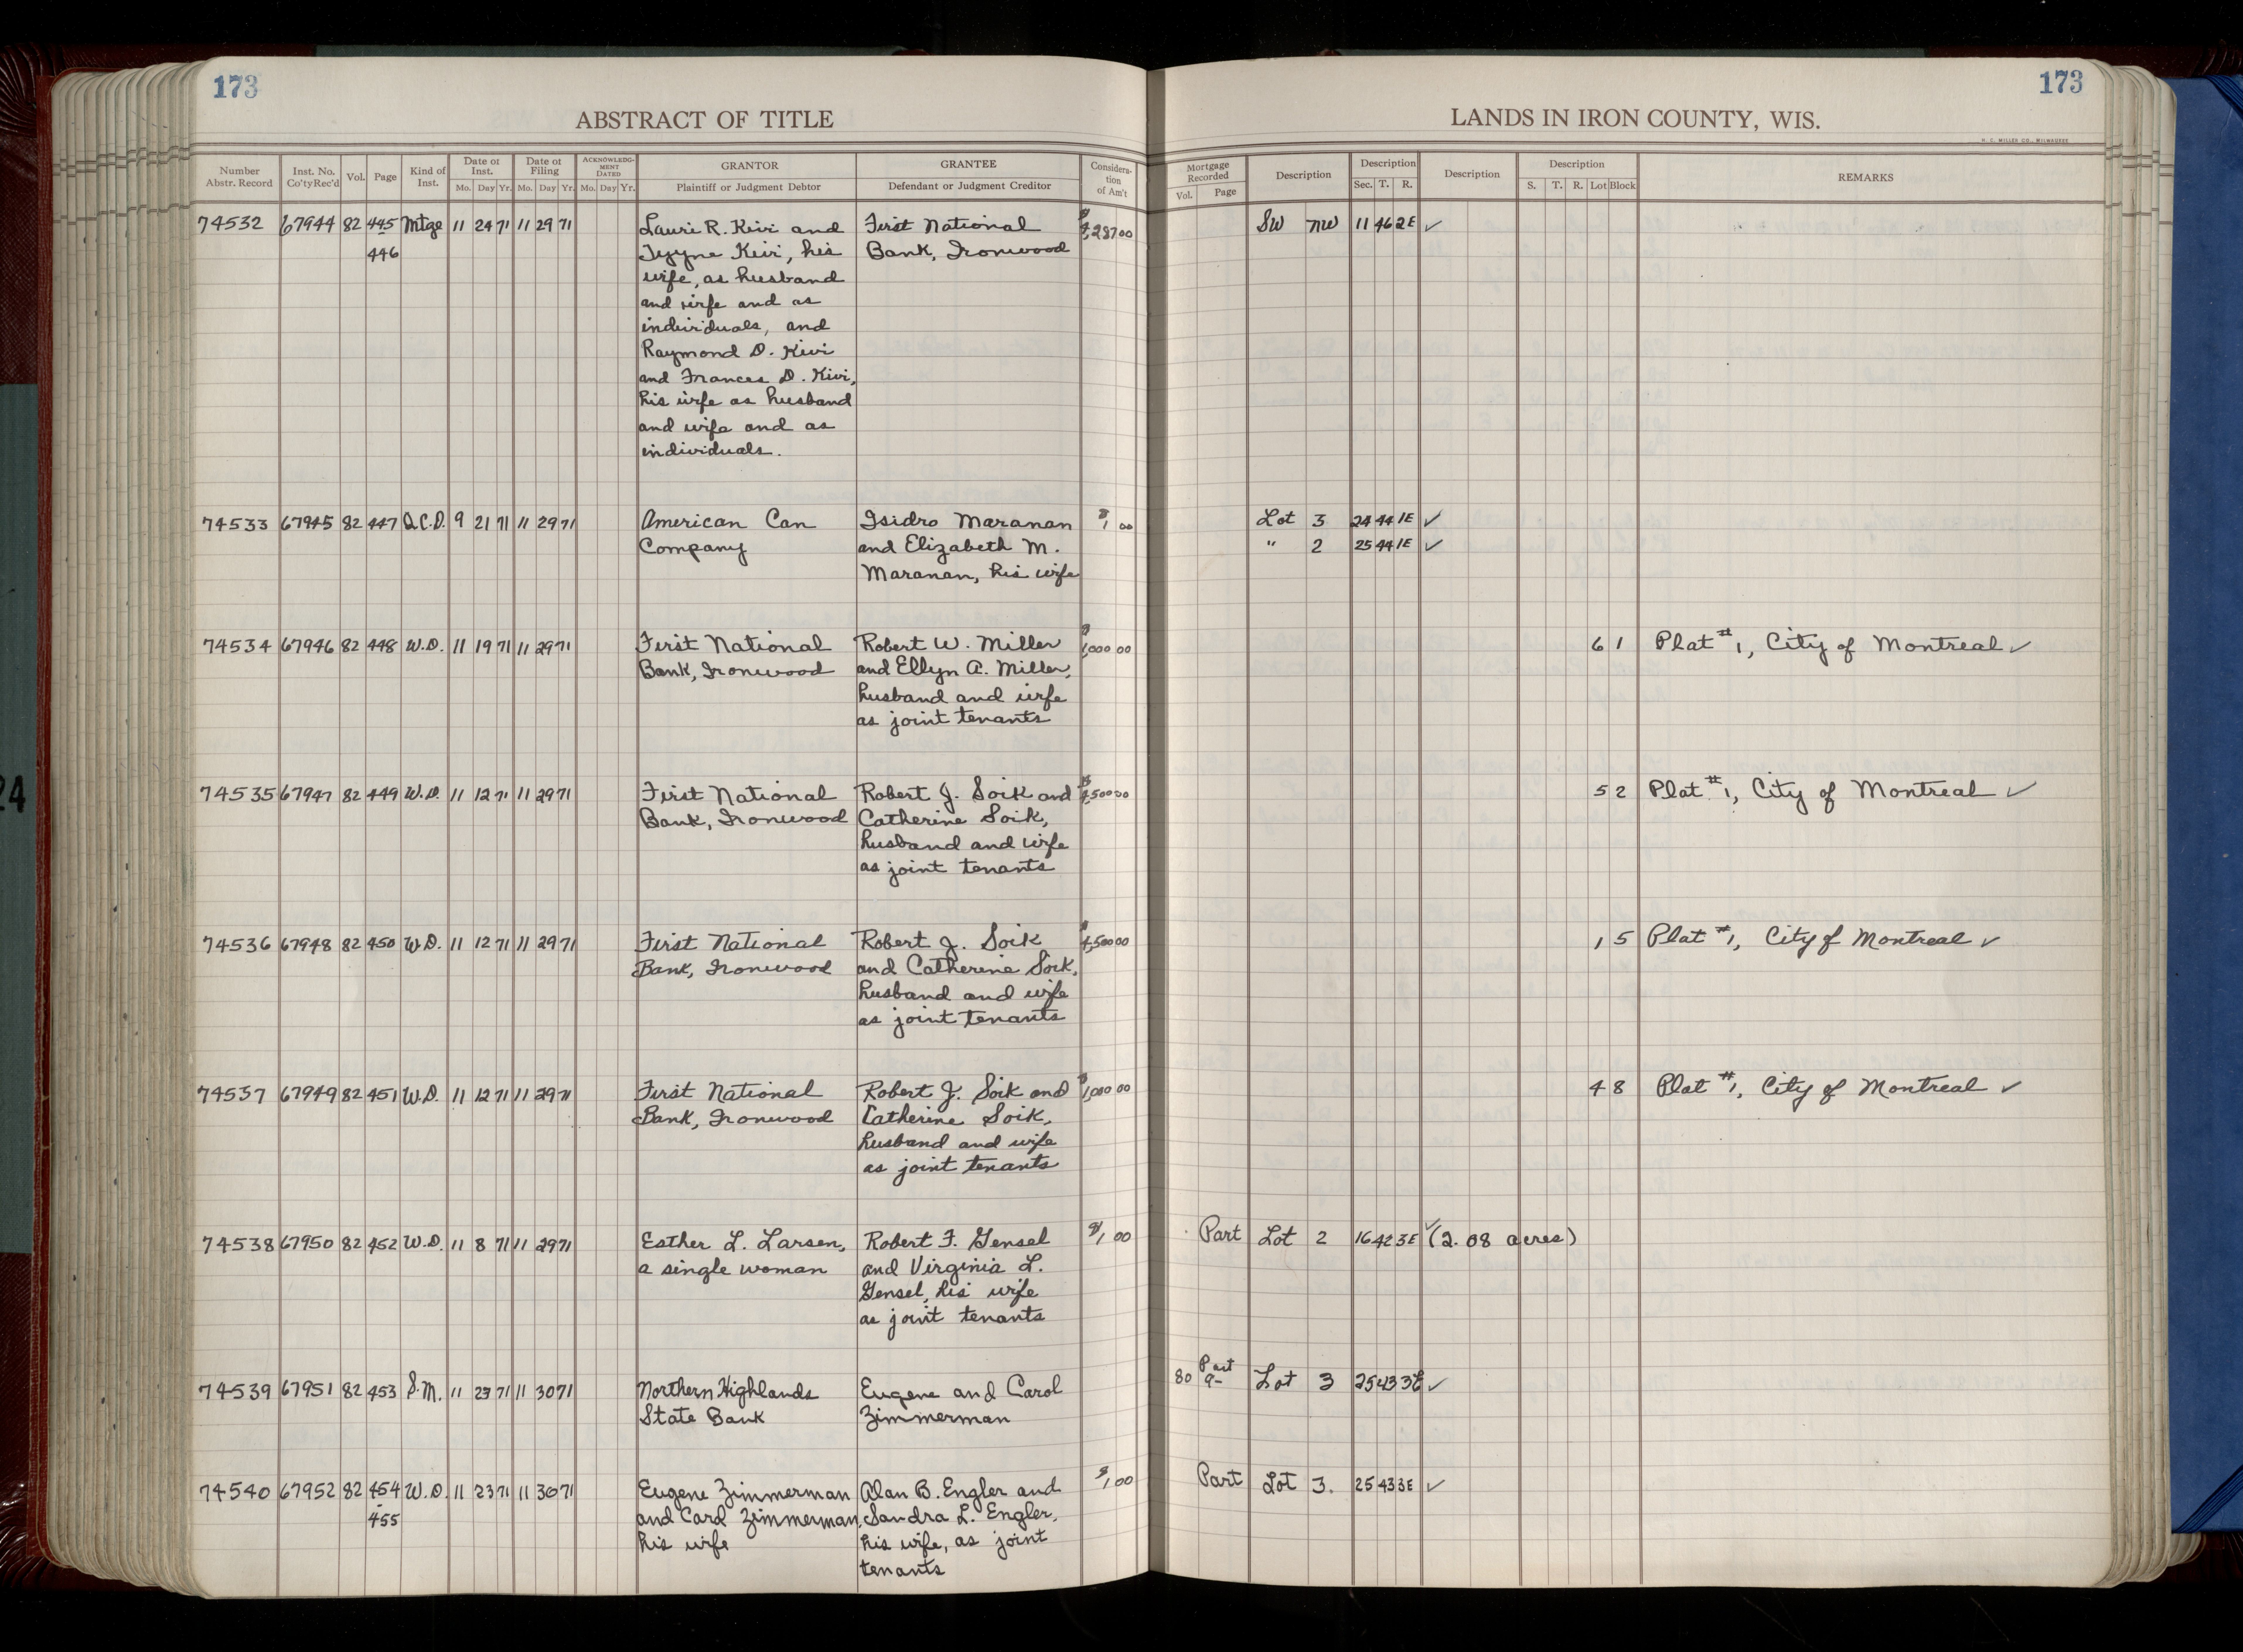 173
173
ABSTRACT OF TITLE
LANDS IN IRON COUNTY, WIS.
H. C. MILLER CO., MILWAUKEE
Number Abstr. Record | Inst. No. Co'ty Rec'd | Vol. | Page | Kind of Inst. | Date of Inst. Mo. Day Yr. | Date of Filing Mo. Day Yr. | ACKNOWLEDGMENT DATED Mo. Day Yr. | GRANTOR Plaintiff or Judgment Debtor | GRANTEE Defendant or Judgment Creditor | Consideration of Am't | Mortgage Recorded Vol. Page | Description | Description Sec. T. R. | Description | Description S. T. R. Lot Block | REMARKS
74532 67944 82 445 Mtge 11 24 71 11 29 71 Lauri R. Kivi and First National $ ,287 00 SW NW 11 46 2E ✓
446 Kivi, his Bank, Ironwood
wife, as husband
and wife and as
individuals, and
Raymond D. Kivi
and Frances D. Kivi,
his wife as husband
and wife and as
individuals.
74533 67945 82 447 Q.C.D. 9 21 71 11 29 71 American Can Isidro Maranan $1 00 Lot 3 24 44 1E ✓
Company and Elizabeth M. " 2 25 44 1E ✓
Maranan, his wife
74534 67946 82 448 W.D. 11 19 71 11 29 71 First National Robert W. Miller $1,000 00 6 1 Plat #1, City of Montreal ✓
Bank, Ironwood and Ellyn A. Miller,
husband and wife
as joint tenants
74535 67947 82 449 W.D. 11 12 71 11 29 71 First National Robert J. Soik and $ ,500 00 5 2 Plat #1, City of Montreal ✓
Bank, Ironwood Catherine Soik,
husband and wife
as joint tenants
74536 67948 82 450 W.D. 11 12 71 11 29 71 First National Robert J. Soik $4,500 00 1 5 Plat #1, City of Montreal ✓
Bank, Ironwood and Catherine Soik,
husband and wife
as joint tenants
74537 67949 82 451 W.D. 11 12 71 11 29 71 First National Robert J. Soik and $1,000 00 4 8 Plat #1, City of Montreal ✓
Bank, Ironwood Catherine Soik,
husband and wife
as joint tenants
74538 67950 82 452 W.D. 11 8 71 11 29 71 Esther L. Larsen, Robert F. Gensel $1 00 Part Lot 2 16 42 3E ✓ (2.08 acres)
a single woman and Virginia L.
Gensel, his wife
as joint tenants
74539 67951 82 453 S.M. 11 23 71 11 30 71 Northern Highlands Eugene and Carol 80 Part 9- Lot 3 25 43 3E ✓
State Bank Zimmerman
74540 67952 82 454 W.D. 11 23 71 11 30 71 Eugene Zimmerman Alan B. Engler and $1 00 Part Lot 3. 25 43 3E ✓
- 455 and Carol Zimmerman, Sandra L. Engler,
his wife his wife, as joint
tenants
24